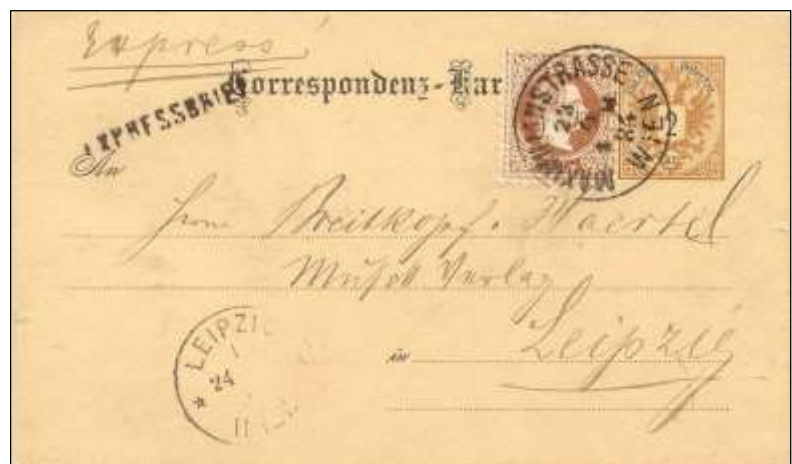 Express!
Correspondenz-Kar
EXPRESSBRIEF
MAXIMILIANSTRASSE WIEN
23
84
2
An
Herrn Breitkopf & Haertel
Musik Verlag
in Leipzig
LEIPZI
24